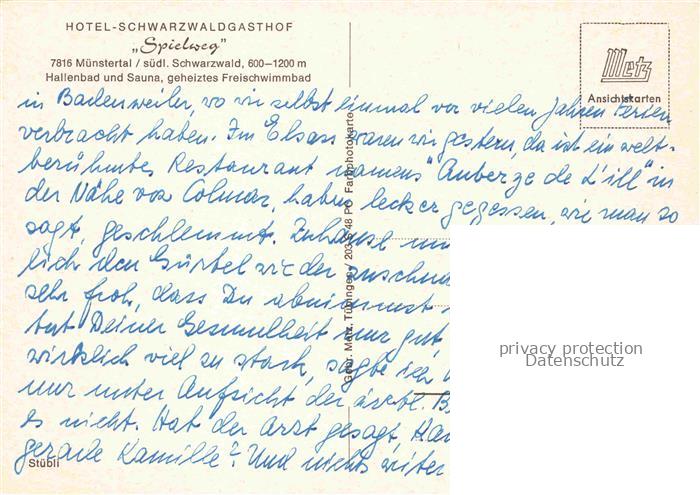 HOTEL-SCHWARZWALDGASTHOF
„Spielweg"
7816 Münstertal / südl. Schwarzwald, 600–1200 m
Hallenbad und Sauna, geheiztes Freischwimmbad
Metz
Ansichtskarten
in Badenweiler, wo wir selbst einmal vor vielen Jahren Ferien
verbracht haben. Im Elsass waren wir gestern, da ist ein welt-
berühmtes Restaurant namens "Auberge de L'ill" in
der Nähe von Colmar, haben lecker gegessen, wie man so
sagt, geschlemmt. Zuhause
lich den Gürtel wieder
sehr froh, dass Du abnimmst
tut Deiner Gesundheit nur gut,
wirklich viel zu stark, sagte ich
nur unter Aufsicht der ärztl.
es nicht. Hat der Arzt gesagt,
gerade Kamille? Und nichts weiter
Stübli
Gebr. Metz, Tübingen
Farbphotokarte
privacy protection
Datenschutz